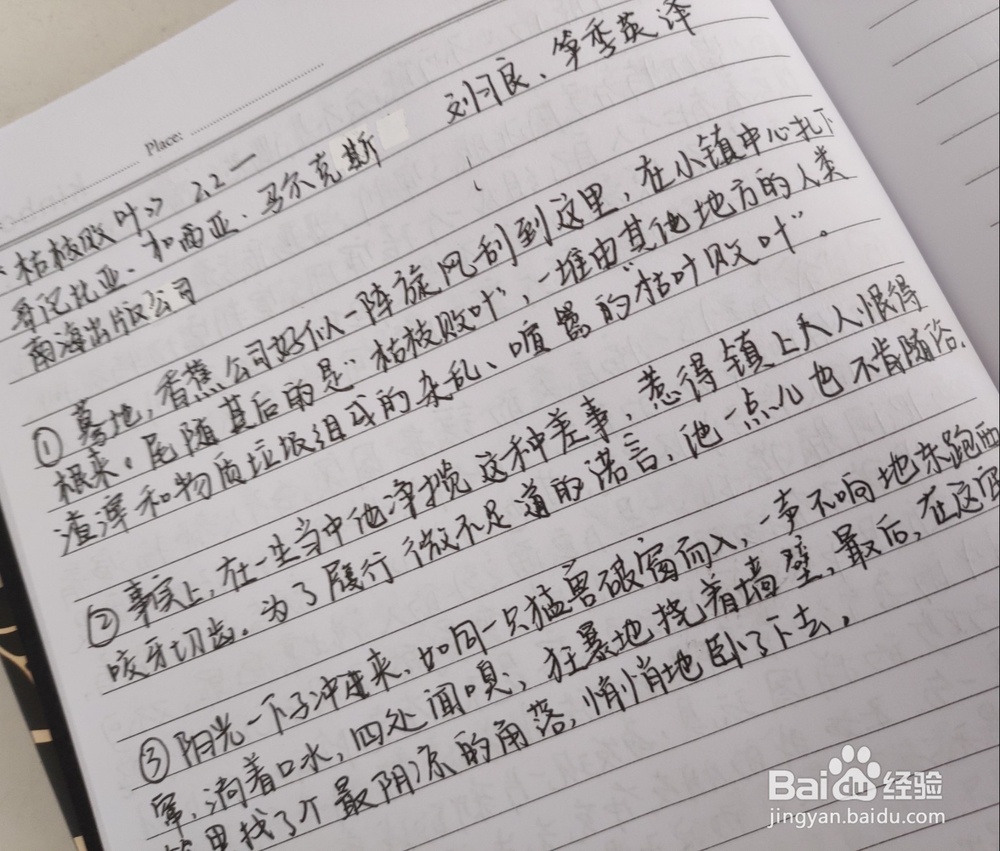 Place:
《枯枝败叶》 2.2一
哥伦比亚·加西亚·马尔克斯 刘习良、笋季英译
南海出版公司
① 蓦地，香蕉公司好似一阵旋风刮到这里，在小镇中心扎下
根来。尾随其后的是"枯枝败叶"，一堆由"其他地方的人类
渣滓和物质垃圾组成的杂乱、喧嚣的枯叶败叶"。
② 事实上，在一生当中他净揽这种差事，惹得镇上人人恨得
咬牙切齿。为了履行微不足道的诺言，他一点儿也不肯随俗.
③ 阳光一下子冲进来，如同一只猛兽破窗而入，一声不响地东跑西
窜，淌着口水，四处闻嗅，狂暴地挠着墙壁，最后，在这间
里找了个最阴凉的角落，悄悄地卧了下去。
Baidu经验
jingyan.baidu.com